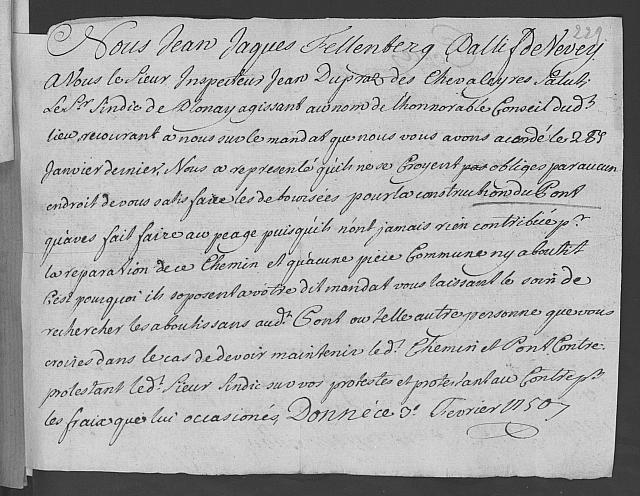 229
Nous Jean Jaques Fellenberg Ballif de Vevey
A Vous le Sieur Inspecteur Jean Dupraz des Chevaleyres Salut;
Le Sr. Sindic de Blonay agissant au nom de l'honnorable Conseil dud.t
lieu, recourant a nous sur le mandat que nous vous avons acordé le 28e
Janvier dernier, Nous a representé quils ne se Croyent pas obliges par aucun
endroit de vous satisfaire les deboursées pour la construction du Pont
qu'aves fait faire au peage puisquils n'ont jamais rien contribüé pr.
la reparation de ce Chemin et qu'aucune piéce Commune ny aboutit
C'est pourquoi ils soposent a vôtre dit mandat vous laissant le soin de
rechercher les aboutissans aud.t Pont ou telle autre personne que vous
croires dans le cas de devoir maintenir led.t Chemin et Pont, Contre
protestant led.t Sieur Sindic sur vos protestes et protestant au Contre pr.
les fraix que lui occasionés, Donné ce 3e Fevrier 1750